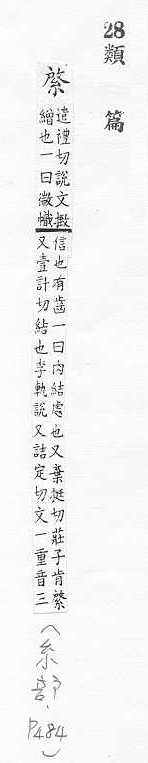 28 類篇
綮
遣禮切說文繒也一曰徽幟
信也有齒一曰肉結處也又棄挺切莊子肯綮
又壹計切結也李軌說又詰定切文一重音三
(糸部. P484)